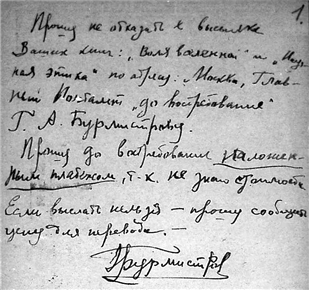 1.
Прошу не отказать в высылке
Ваших книг: "Воля вселенной" и "Науч
ная этика" по адрес. Москва, Глав-
ный Почтамт "до востребования"
Г. А. Бурмистрову.
Прошу до востребования наложен-
ным платежом, т. к. не знаю стоимости.
Если выслать нельзя – прошу сообщить
цену для перевода. —
Бурмистров